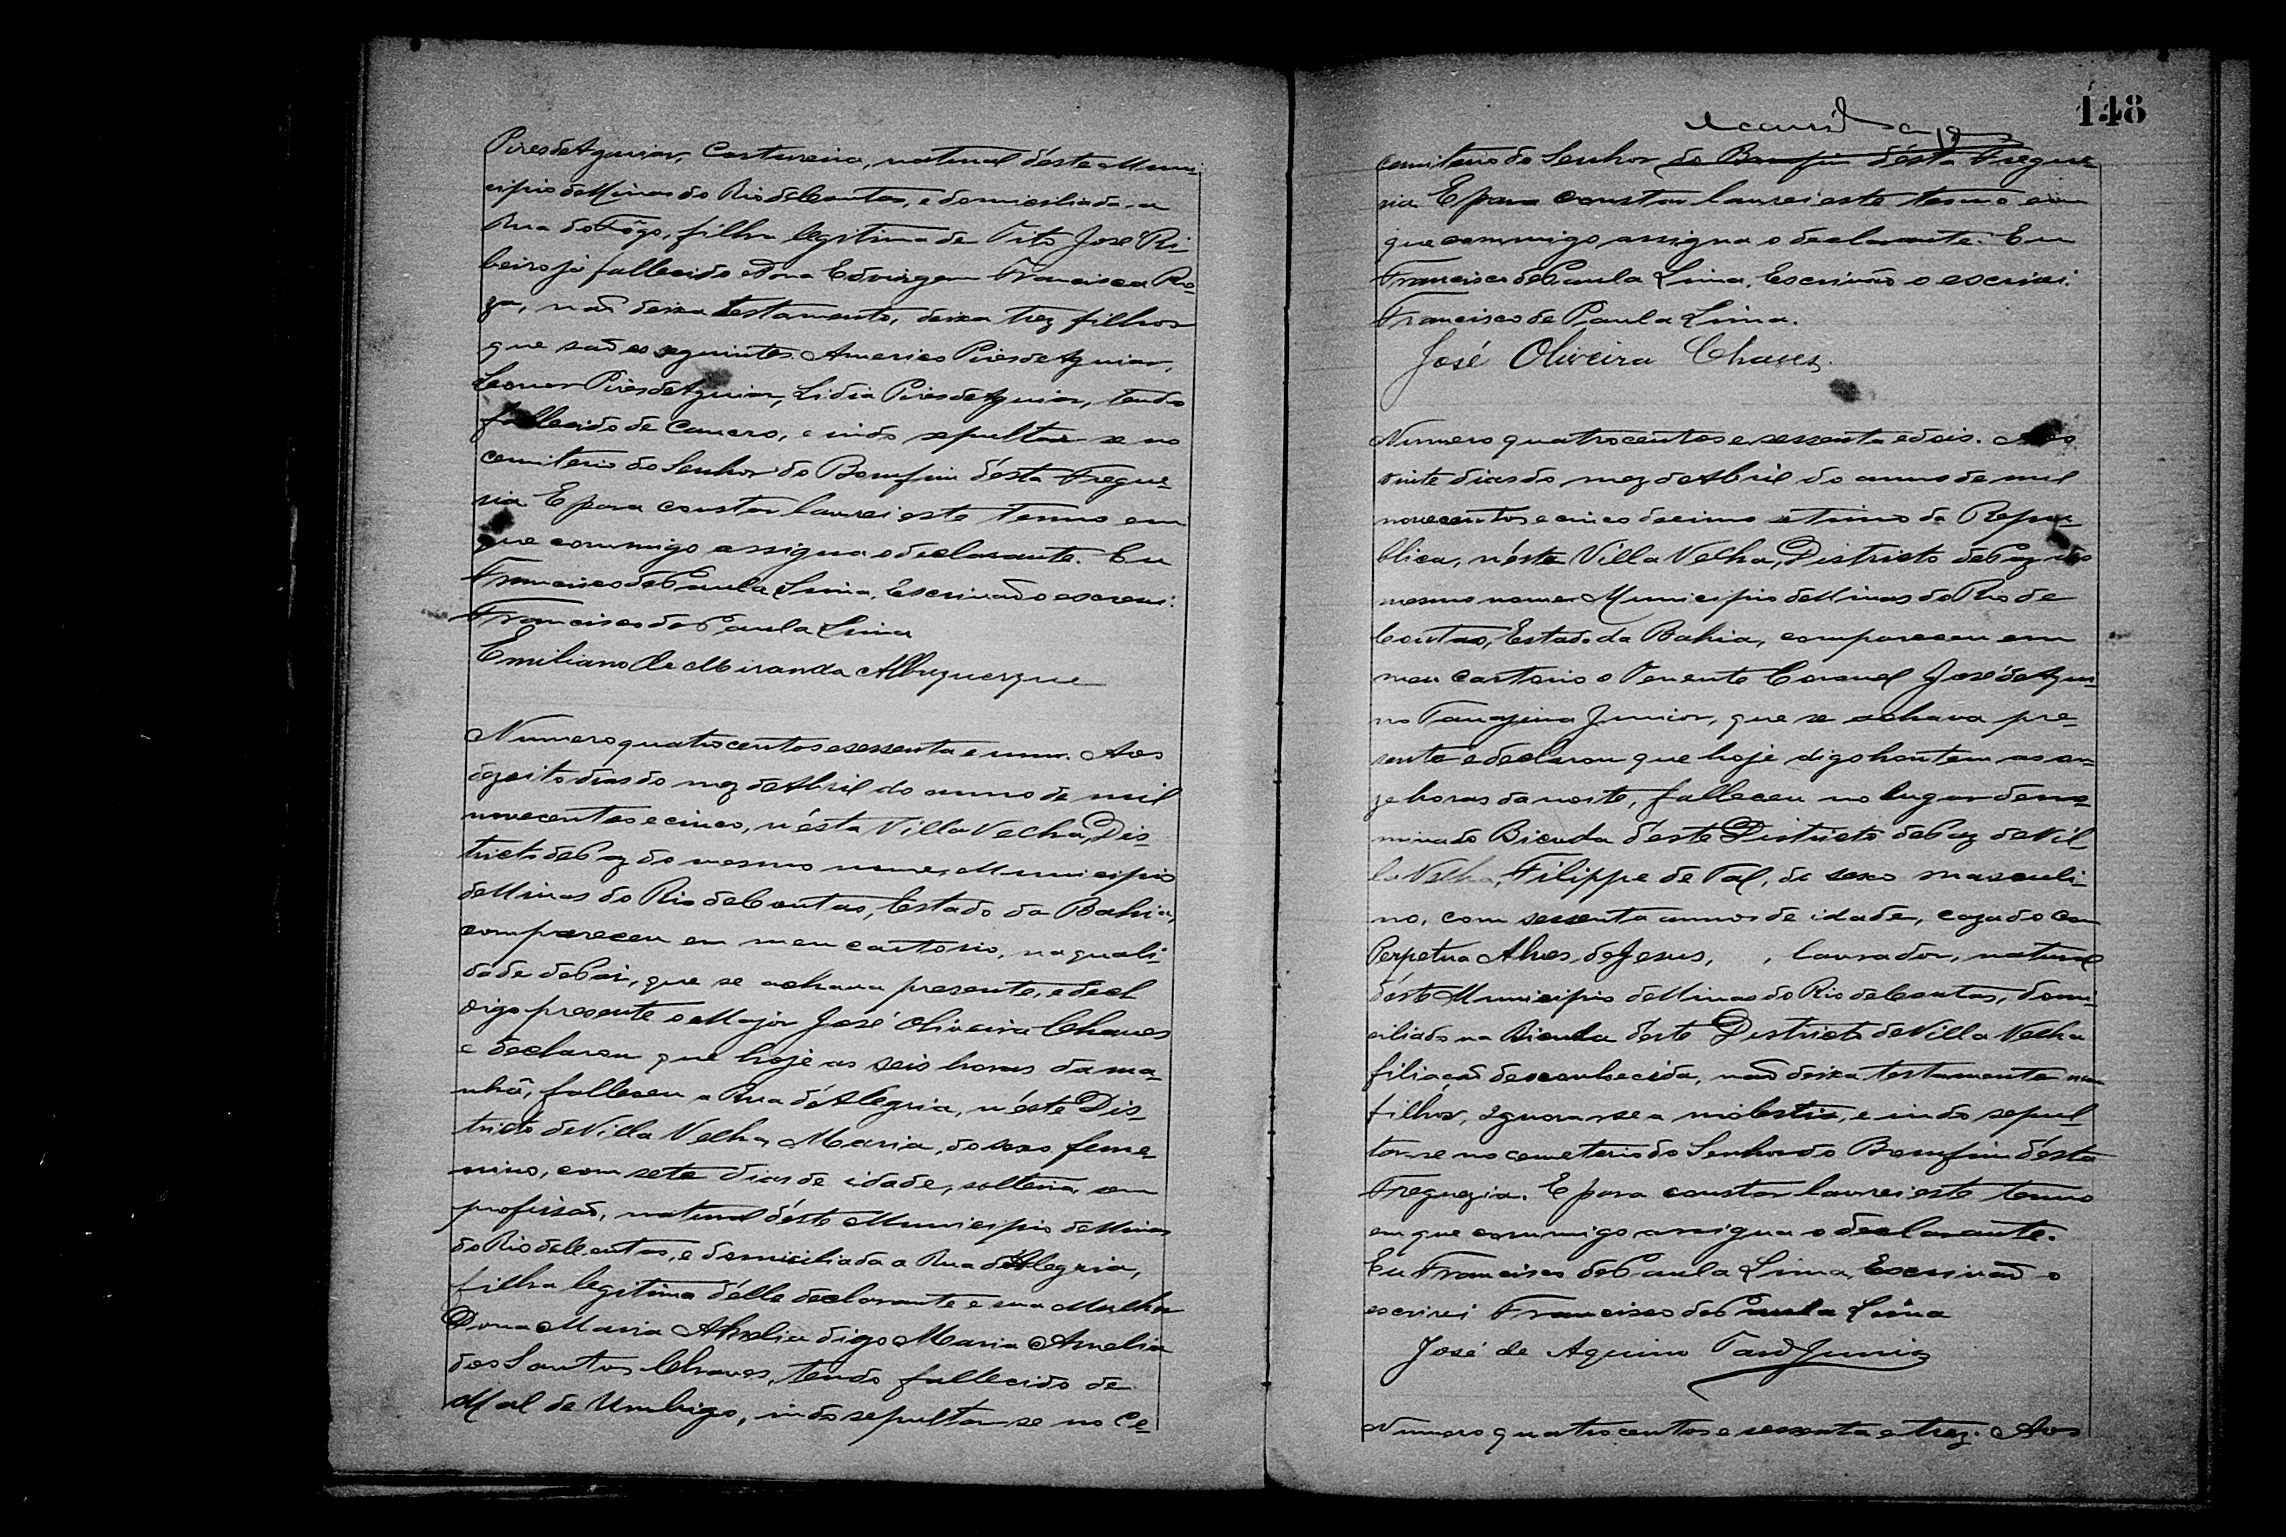 Pires de Aguiar, Costureira, natural d'este Muni-
cipio de Minas do Rio de Contas, e domiciliada a
Rua do Fôgo, filha legitima de Tito José Ri-
beiro já fallecido e Dona Edvirgem Francisca Ro-
za, não deixa testamento, deixa trez filhos
que são os seguintes Americo Pires de Aguiar,
Leonor Pires de Aguiar, Lidia Pires de Aguiar, tendo
fallecido de Cancro, e indo sepultar se no
cemiterio do Senhor do Bomfim d'esta Fregue-
sia E para constar lavrei este termo em
que commigo assigna o declarante. Eu
Francisco de Paula Lima, Escrivão o escrevi.
Francisco de Paula Lima
Emiliano de Miranda Albuquerque
Numero quatrocentos e sessenta e um. Aos
dezoito dias do mez de Abril do anno de mil
novecentos e cinco, n'esta Villa Velha, Dis-
tricto de Paz do mesmo nome, Municipio
de Minas do Rio de Contas, Estado da Bahia,
compareceu em meu cartorio, na quali-
dade de Pai, que se achava presente, e decl
digo presente o Major José Oliveira Chaves
e declarou que hoje as seis horas da ma-
nhã, falleceu a Rua d'Alegria, n'este Dis-
tricto de Villa Velha, Maria, do sexo feme-
nino, com sete dias de idade, solteira, sem
profissão, natural d'este Municipio de Minas
do Rio de Contas, e domiciliada a Rua d'Alegria,
filha legitima d'elle declarante e sua Mulher
Dona Maria digo Maria Amelia
dos Santos Chaves, tendo fallecido de
Mal de Umbigo, indo sepultar-se no Ce-
148
cemiterio do Senhor do Bomfim d'esta Fregue-
sia E para constar lavrei este termo em
que commigo assigna o declarante. Eu
Francisco de Paula Lima, Escrivão o escrivi.
Francisco de Paula Lima.
José Oliveira Chaves.
Numero quatrocentos e sessenta e dois. Aos
vinte dias do mez de Abril do anno de mil
novecentos e cinco decimo setimo da Repu-
blica, n'esta Villa Velha, Districto de Paz do
mesmo nome Municipio de Minas do Rio de
Contas, Estado da Bahia, compareceu em
meu cartorio o Tenente Coronel José de Aqui-
no Tanajura Junior, que se achava pre-
sente e declarou que hoje digo hontem as on-
ze horas da noite, falleceu no lugar deno-
minado Bicuda d'este Districto de Paz de Vil-
la Velha, Filippe de Tal, do sexo masculi-
no, com sessenta annos de idade, cazado com
Perpetua Alves de Jesus, , lavrador, natural
d'este Municipio de Minas do Rio de Contas, domi-
ciliado na Bicuda d'este Districto de Villa Velha
filiação desconhecida, não deixa testamento nem
filhos, ignora-se a molestia, e indo sepul-
tar-se no cemeterio do Senhor do Bomfim d'esta
Freguezia. E para constar lavrei este termo
em que commigo assigna o declarante.
Eu Francisco de Paula Lima, Escrivão o
escrivi Francisco de Paula Lima
José de Aquino Tan Junior
Numero quatrocentos e sessenta e trez. Aos